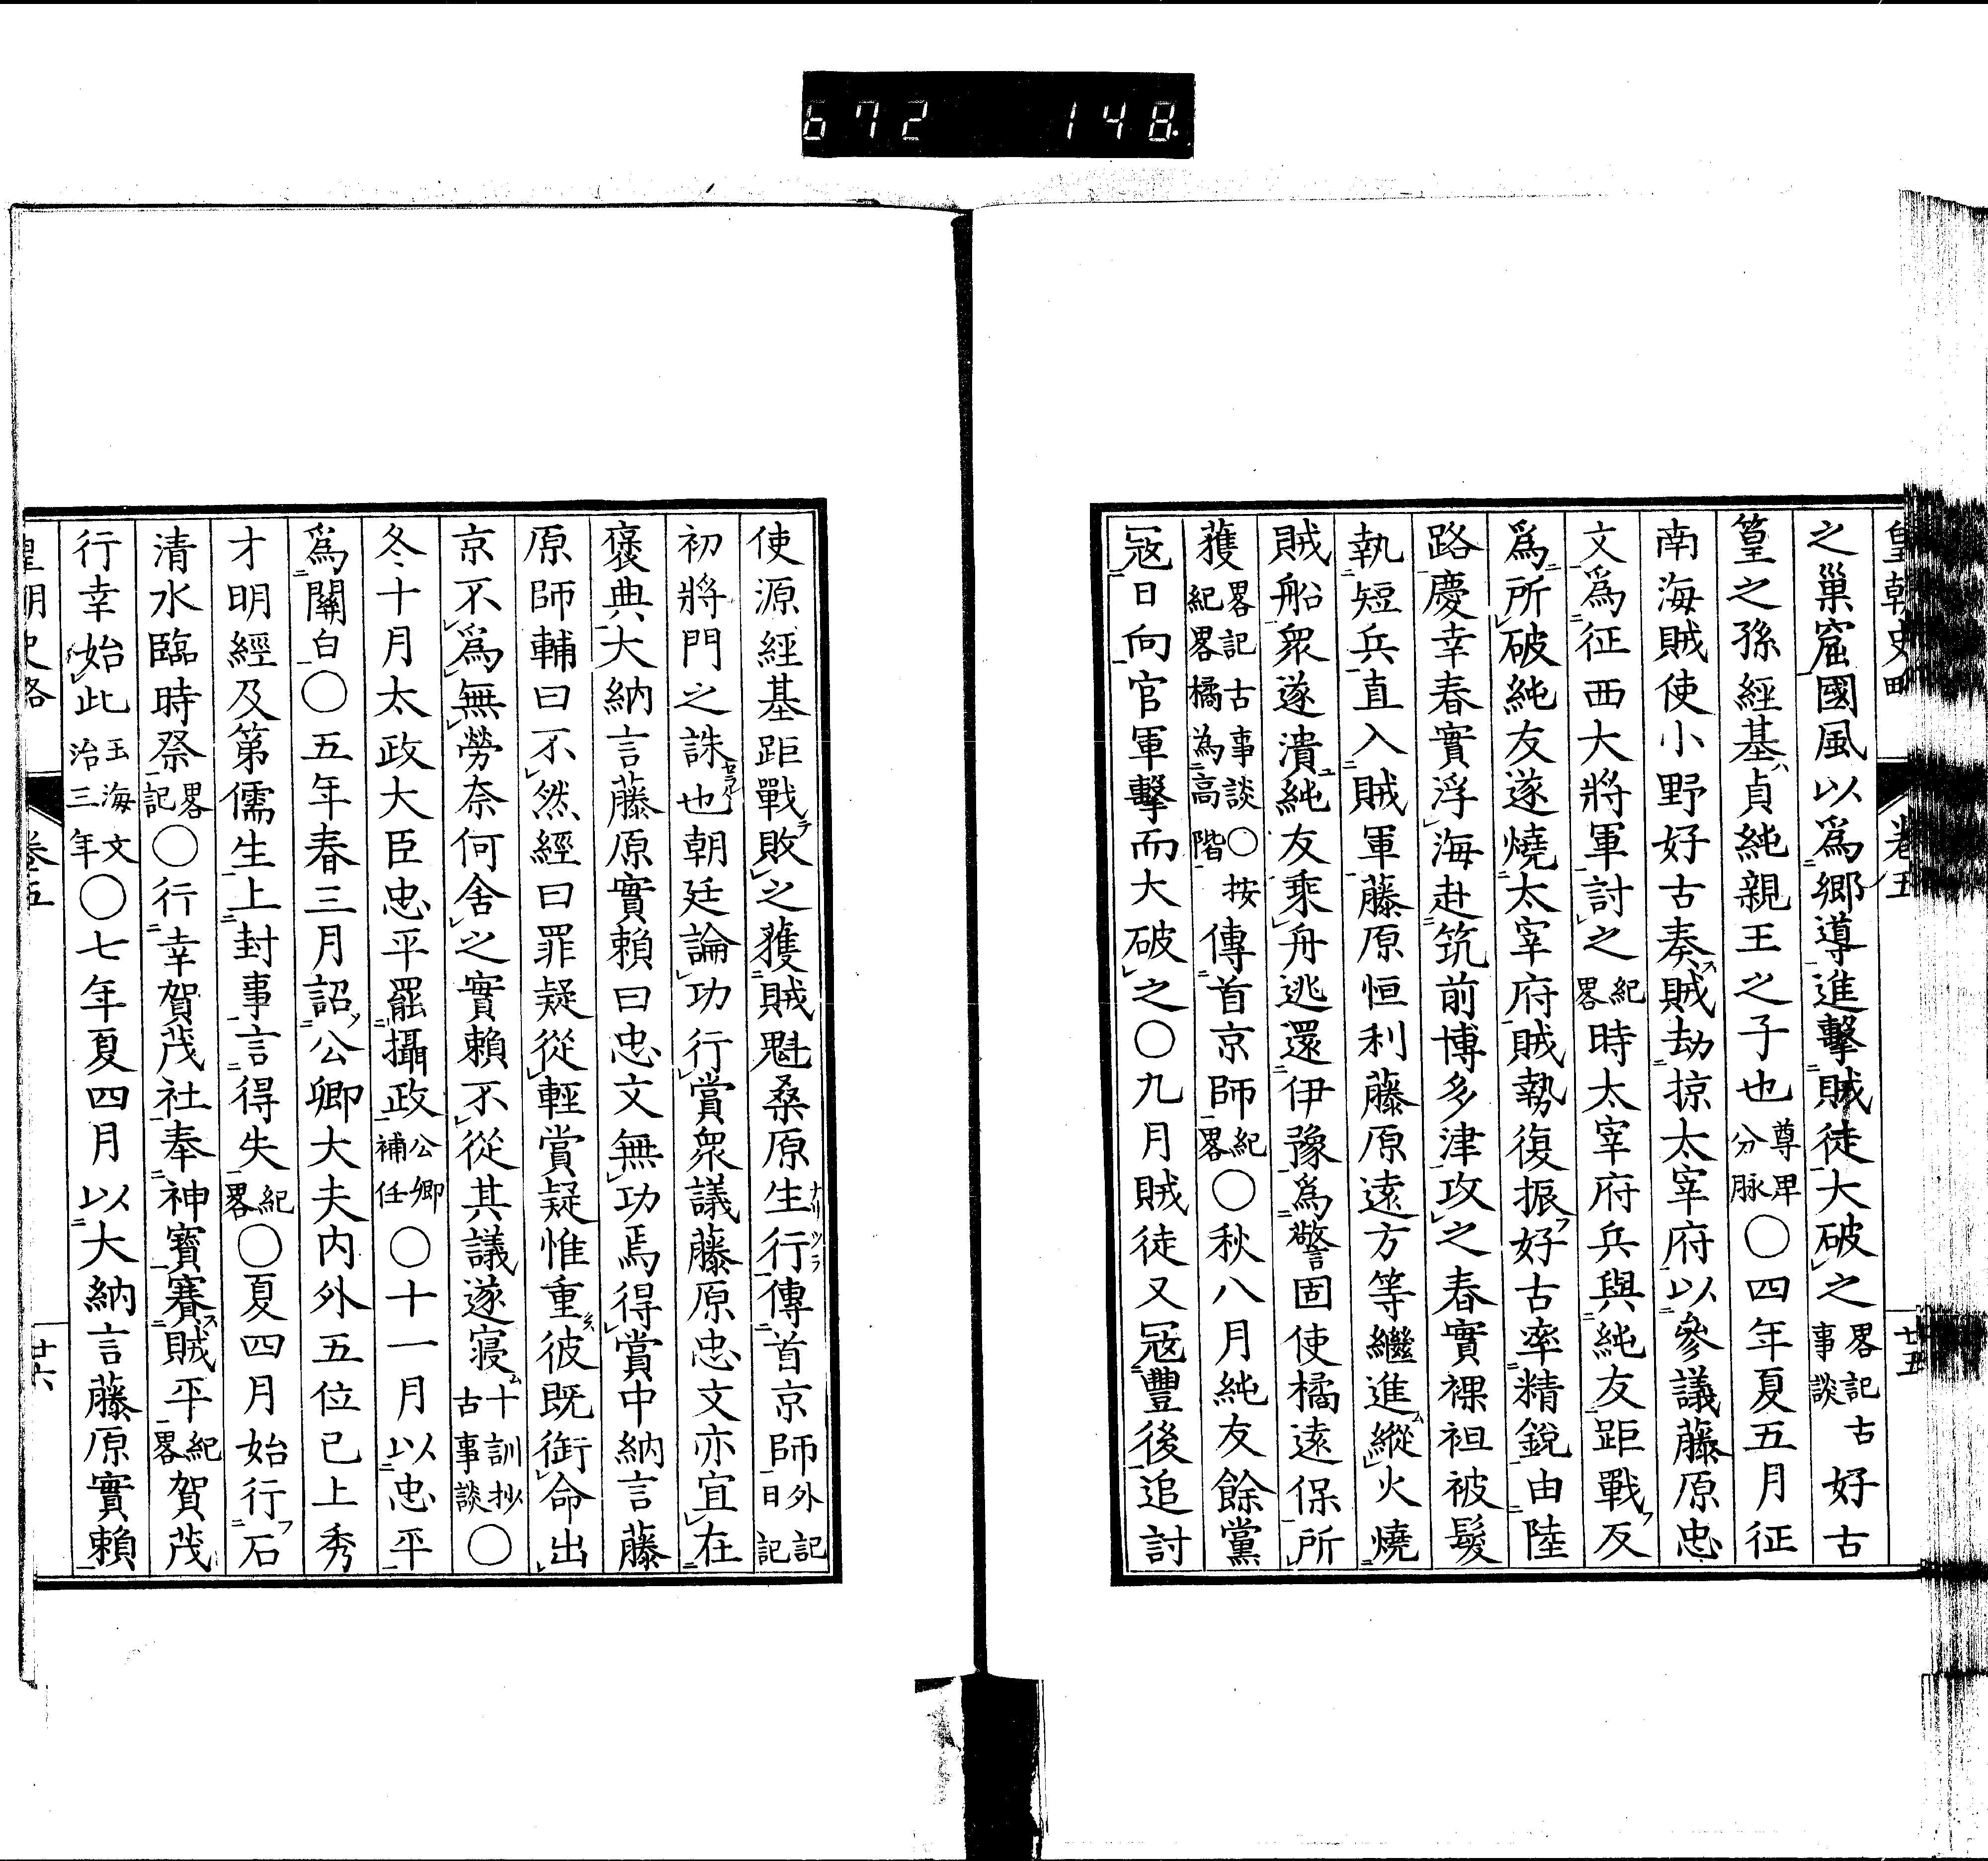 672 148
皇朝史略 卷五 廿五
之巢窟國風以爲鄉導進擊賊徒大破之畧記古事談好古
篁之孫經基貞純親王之子也尊卑分脉〇四年夏五月征
南海賊使小野好古奏賊劫掠太宰府以參議藤原忠
文爲征西大將軍討之紀畧時太宰府兵與純友距戰反
爲所破純友遂燒太宰府賊勢復振好古率精銳由陸
路慶幸春實浮海赴筑前博多津攻之春實裸袒被髮
執短兵直入賊軍藤原恒利藤原遠方等繼進縱火燒
賊船衆遂潰純友乘舟逃還伊豫爲警固使橘遠保所
獲畧記古事談〇按紀畧橘為高階傳首京師紀畧〇秋八月純友餘黨
冦日向官軍擊而大破之〇九月賊徒又冦豐後追討
使源經基距戰敗之獲賊魁桑原生行傳首京師外記日記
初將門之誅也朝廷論功行賞衆議藤原忠文亦宜在
褒典大納言藤原實賴曰忠文無功焉得賞中納言藤
原師輔曰不然經曰罪疑從輕賞疑惟重彼既銜命出
京不爲無勞奈何舍之實賴不從其議遂寢十訓抄古事談〇
冬十月太政大臣忠平罷攝政公卿補任〇十一月以忠平
爲關白〇五年春三月詔公卿大夫内外五位已上秀
才明經及第儒生上封事言得失紀畧〇夏四月始行石
清水臨時祭畧記〇行幸賀茂社奉神寶賽賊平紀畧賀茂
行幸始此玉海文治三年〇七年夏四月以大納言藤原實賴
皇朝史略 卷五 廿六